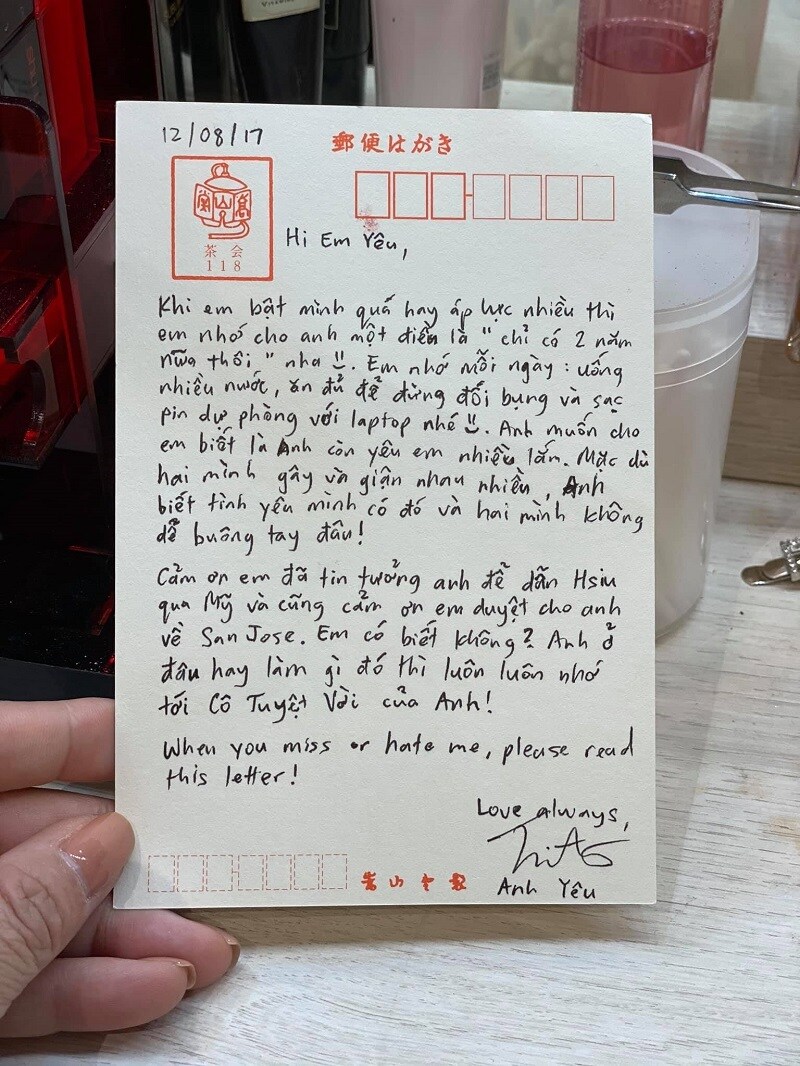 12/08/17
郵便はがき
茶会
118
Hi Em Yêu,
Khi em bật mình quá hay áp lực nhiều thì
em nhớ cho anh một điều là "chỉ có 2 năm
nữa thôi" nha !!. Em nhớ mỗi ngày: uống
nhiều nước, ăn đủ để đừng đói bụng và sạc
pin dự phòng với laptop nhé !!. Anh muốn cho
em biết là Anh còn yêu em nhiều lắm. Mặc dù
hai mình gây và giận nhau nhiều, Anh
biết tình yêu mình có đó và hai mình không
dễ buông tay đâu!
Cảm ơn em đã tin tưởng anh để dẫn Hsiu
qua Mỹ và cũng cảm ơn em duyệt cho anh
về San Jose. Em có biết không? Anh ở
đâu hay làm gì đó thì luôn luôn nhớ
tới Cô Tuyệt Vời của Anh!
When you miss or hate me, please read
this letter!
Love always,
Anh Yêu